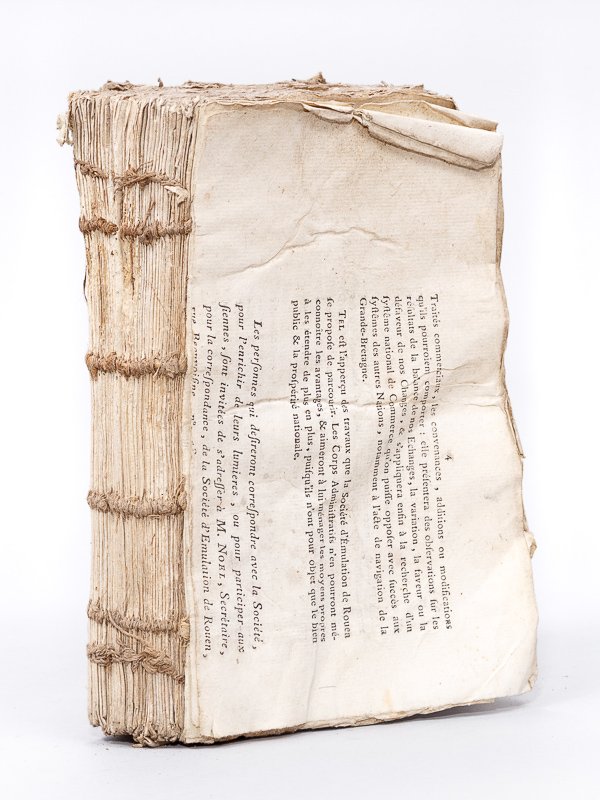 4
Traités commerciaux, les convenances, additions ou modifications
qu'ils pourroient comporter : elle présentera des observations sur les
résultats de la balance de nos Echanges, la variation, la faveur ou la
défaveur de nos Changes, & s'appliquera enfin à la recherche d'un
systême national de Commerce qu'on puisse opposer avec succès aux
systêmes des autres Nations, notamment à l'acte de navigation de la
Grande-Bretagne.
TEL est l'apperçu des travaux que la Société d'Emulation de Rouen
se propose de parcourir. Les Corps Administratifs n'en pourront mé-
connoitre les avantages, & aimeront à lui ménager les moyens propres
à les étendre de plus en plus, puisqu'ils n'ont pour objet que le bien
public & la prospérité nationale.
Les personnes qui desireront correspondre avec la Société,
pour l'enrichir de leurs lumieres, ou pour participer aux
siennes, sont invitées de s'adresser à M. NOEL, Secrétaire,
pour la correspondance, de la Société d'Emulation de Rouen,